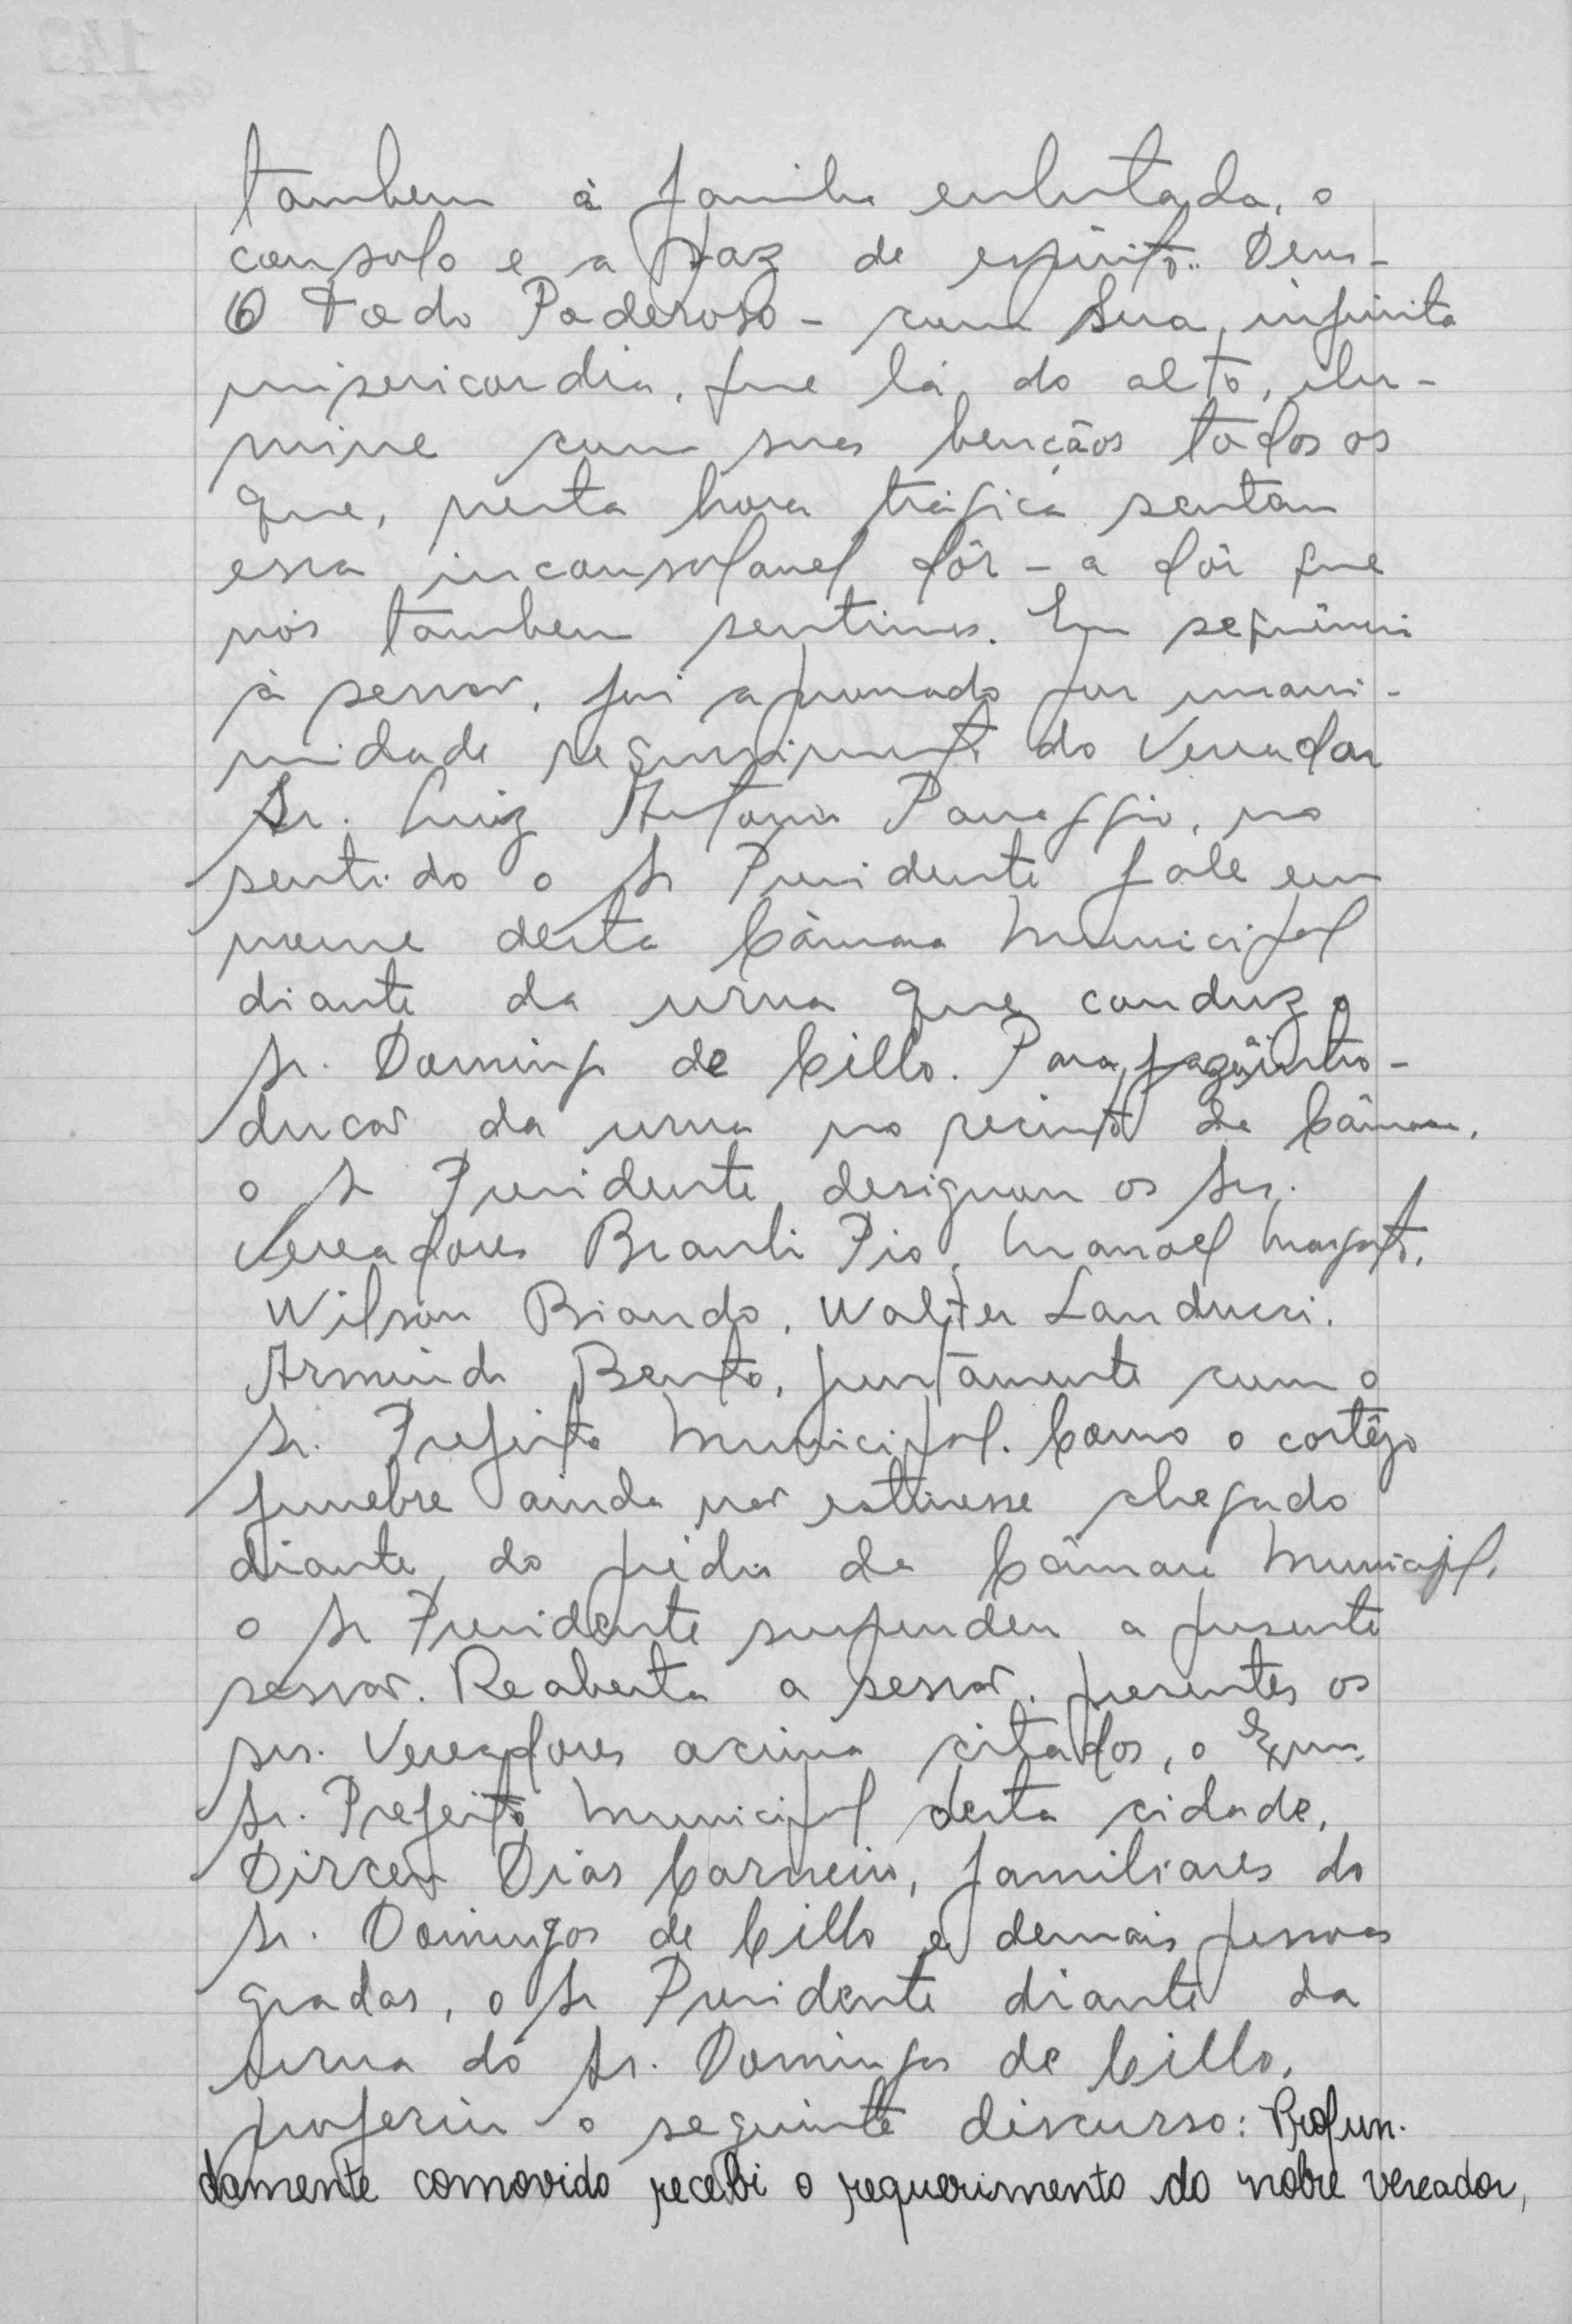 tambem à familia enlutada, o
consolo e a paz de espirito. Deus -
O Todo Poderoso - com Sua infinita
misericordia, que lá do alto, ilu-
mine com suas bençãos todos os
que, nesta hora trágica sentem
essa inconsolavel dôr - a dôr que
nós tambem sentimos. Em sequência
à sessão, foi aprovado por unani-
midade requerimento do Vereador
Sr. Luiz Antonio Panaggio, no
sentido o Sr Presidente fale em
nome desta Câmara Municipal
diante da urna que conduz o
Sr. Domingos de Cillo. Para a intro-
dução da urna no recinto da Câmara,
o Sr Presidente designou os Srs.
Vereadores Braulio Pio, Manoel
Wilson Biando, Walter Landucci,
Armindo Bento, juntamente com o
Sr. Prefeito Municipal. Como o cortêjo
funebre ainda não estivesse chegado
diante do prédio da Câmara Municipal,
o Sr Presidente suspendeu a presente
sessão. Reaberta a sessão, presentes os
srs. Vereadores acima citados, o Exmo.
Sr. Prefeito Municipal desta cidade,
Dirceu Dias Carneiro, familiares do
Sr. Domingos de Cillo e demais pessoas
gradas, o Sr Presidente diante da
urna do Sr. Domingos de Cillo,
proferiu o seguinte discurso: Profun-
damente comovido recebi o requerimento do nobre vereador,